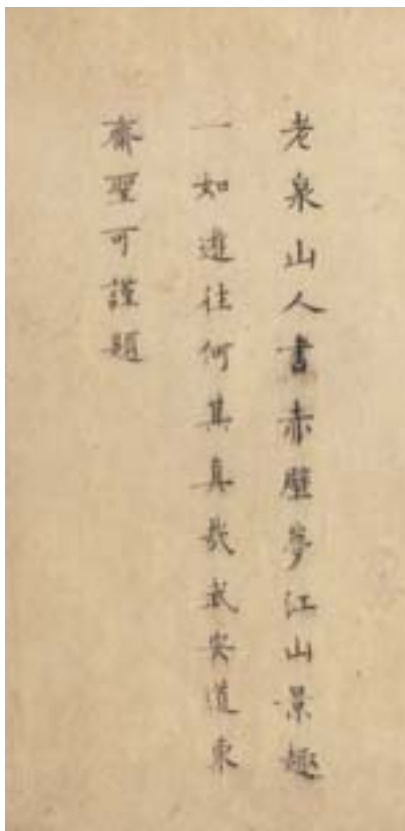 老泉山人書赤壁夢江山景趣
一如遊往何其真哉武安道東
齋聖可謹題